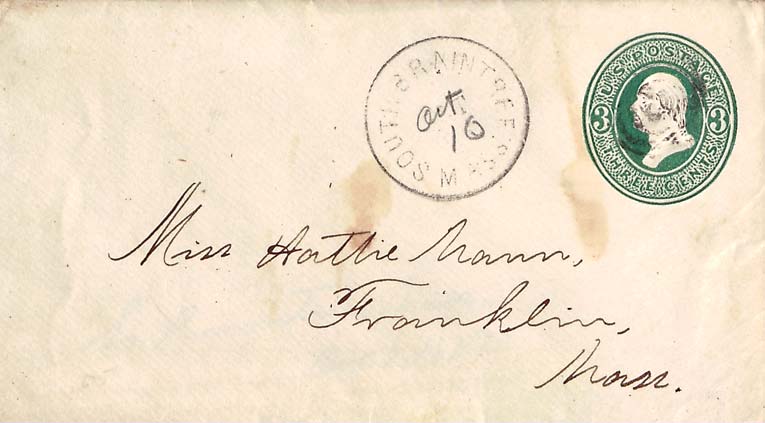 SOUTH BRAINTREE MASS
Oct.
16
U.S. POSTAGE
3 3
THREE CENTS
Miss Hattie Mann,
Franklin,
Mass.